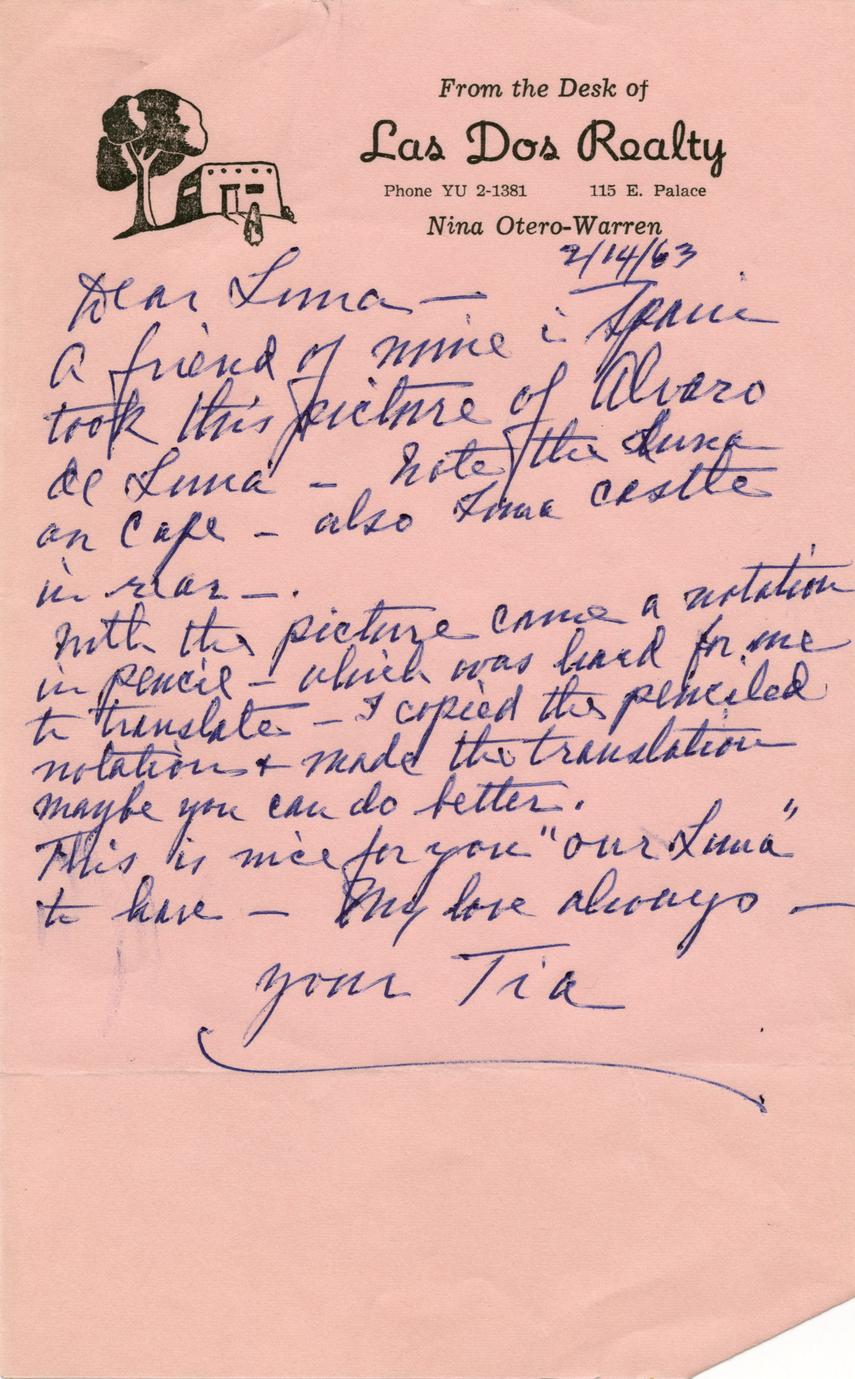 From the Desk of
Las Dos Realty
Phone YU 2-1381 115 E. Palace
Nina Otero-Warren
2/14/63
Dear Luna —
A friend of mine i Spain
took this picture of Alvaro
de Luna — note the Luna
on Cape — also Luna castle
in rear —.
With the picture came a notation
in pencil — which was hard for me
to translate — I copied the penciled
notation & made the translation
maybe you can do better.
This is nice for you "our Luna"
to have — My love always —
your Tia